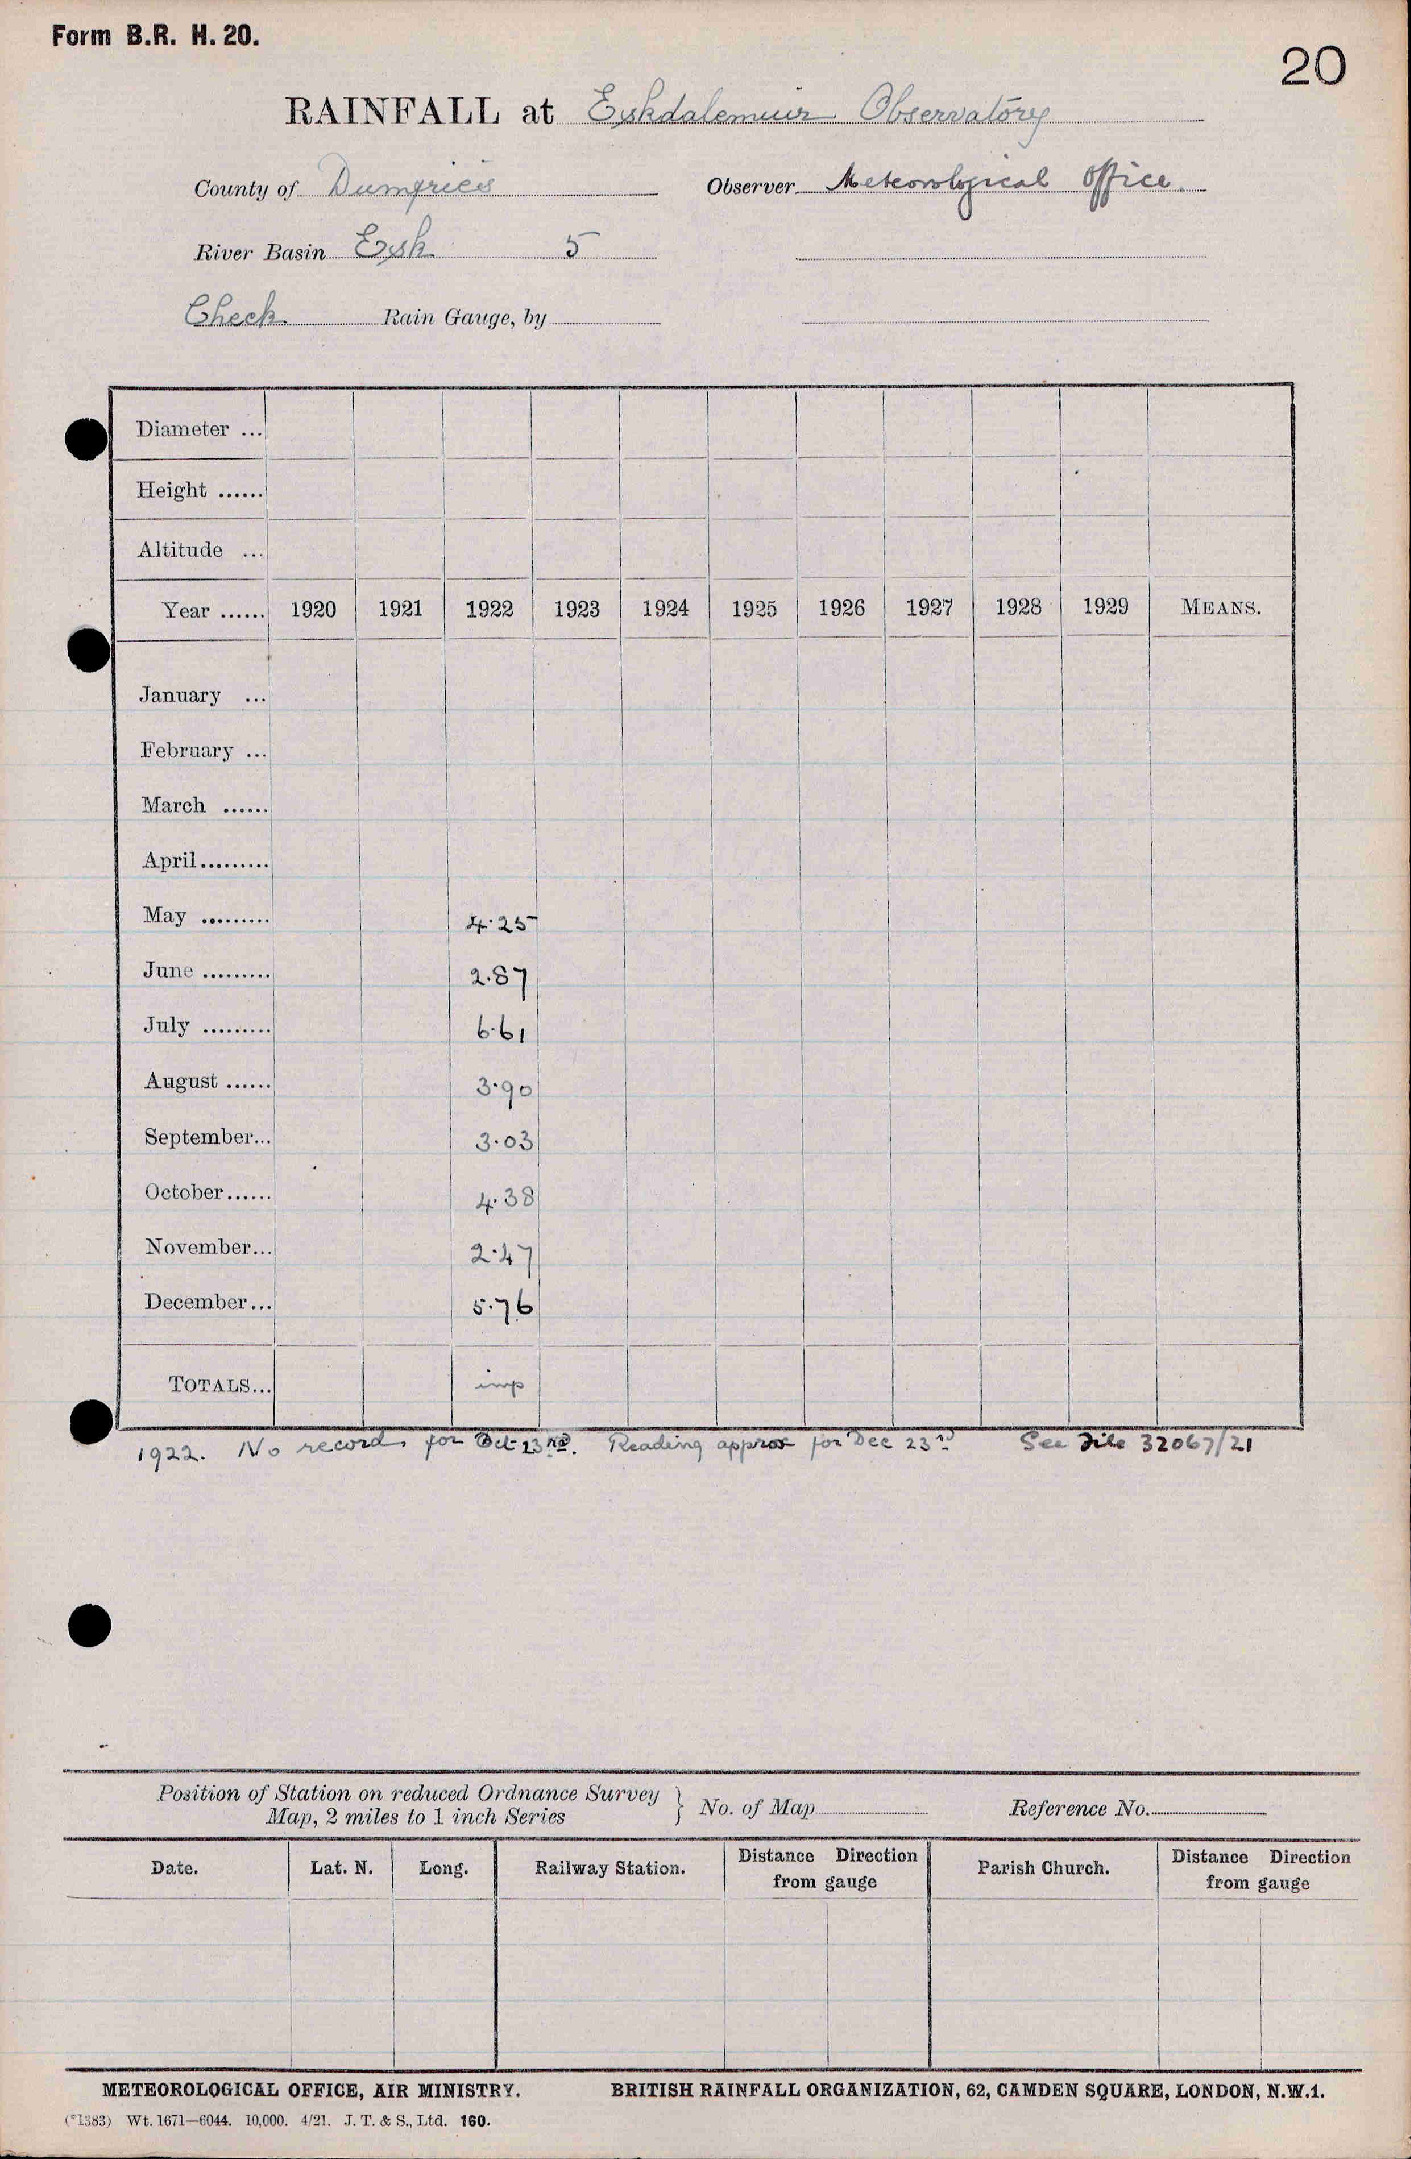 Form B.R. H. 20.
20
RAINFALL at Eskdalemuir Observatory
County of Dumfries Observer Meteorological Office.
River Basin Esk 5
Check Rain Gauge, by
Diameter ...
Height ......
Altitude ...
Year ...... 1920 1921 1922 1923 1924 1925 1926 1927 1928 1929 MEANS.
January ...
February ...
March ......
April.........
May ......... 4.25
June ......... 2.87
July ......... 6.61
August ...... 3.90
September... 3.03
October...... 4.38
November... 2.47
December... 5.76
TOTALS... imp
1922. No record for Oct 23rd. Reading approx for Dec 23rd See File 32067/21
Position of Station on reduced Ordnance Survey
Map, 2 miles to 1 inch Series } No. of Map Reference No.
Date. Lat. N. Long. Railway Station. Distance Direction from gauge Parish Church. Distance Direction from gauge
METEOROLOGICAL OFFICE, AIR MINISTRY. BRITISH RAINFALL ORGANIZATION, 62, CAMDEN SQUARE, LONDON, N.W.1.
(*1383) Wt. 1671—6044. 10,000. 4/21. J. T. & S., Ltd. 160.